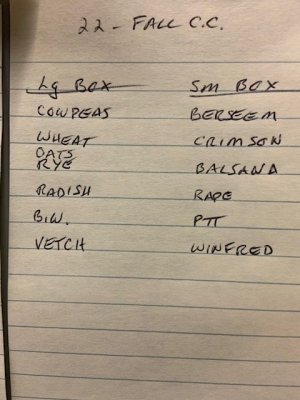 22 - FALL C.C.
Lg BOX Sm BOX
COWPEAS BERSEEM
WHEAT CRIMSON
OATS
RYE BALSANA
RADISH RAPE
B.W. PTT
VETCH WINFRED